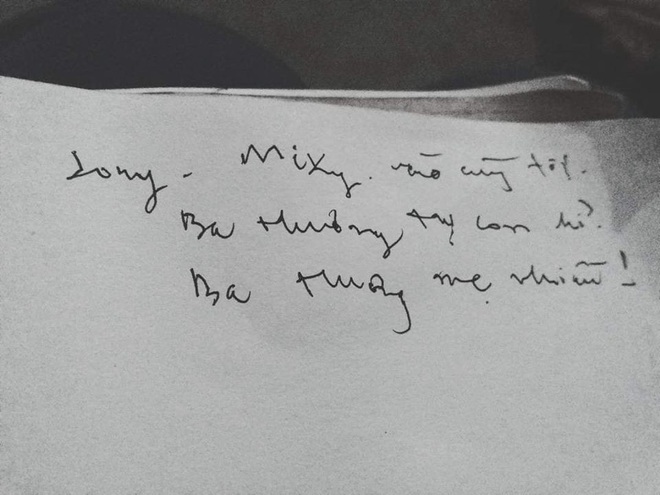 Sony - MiXy. vào cũng tốt.
Ba thương tụi con
Ba thương mẹ nhiều!